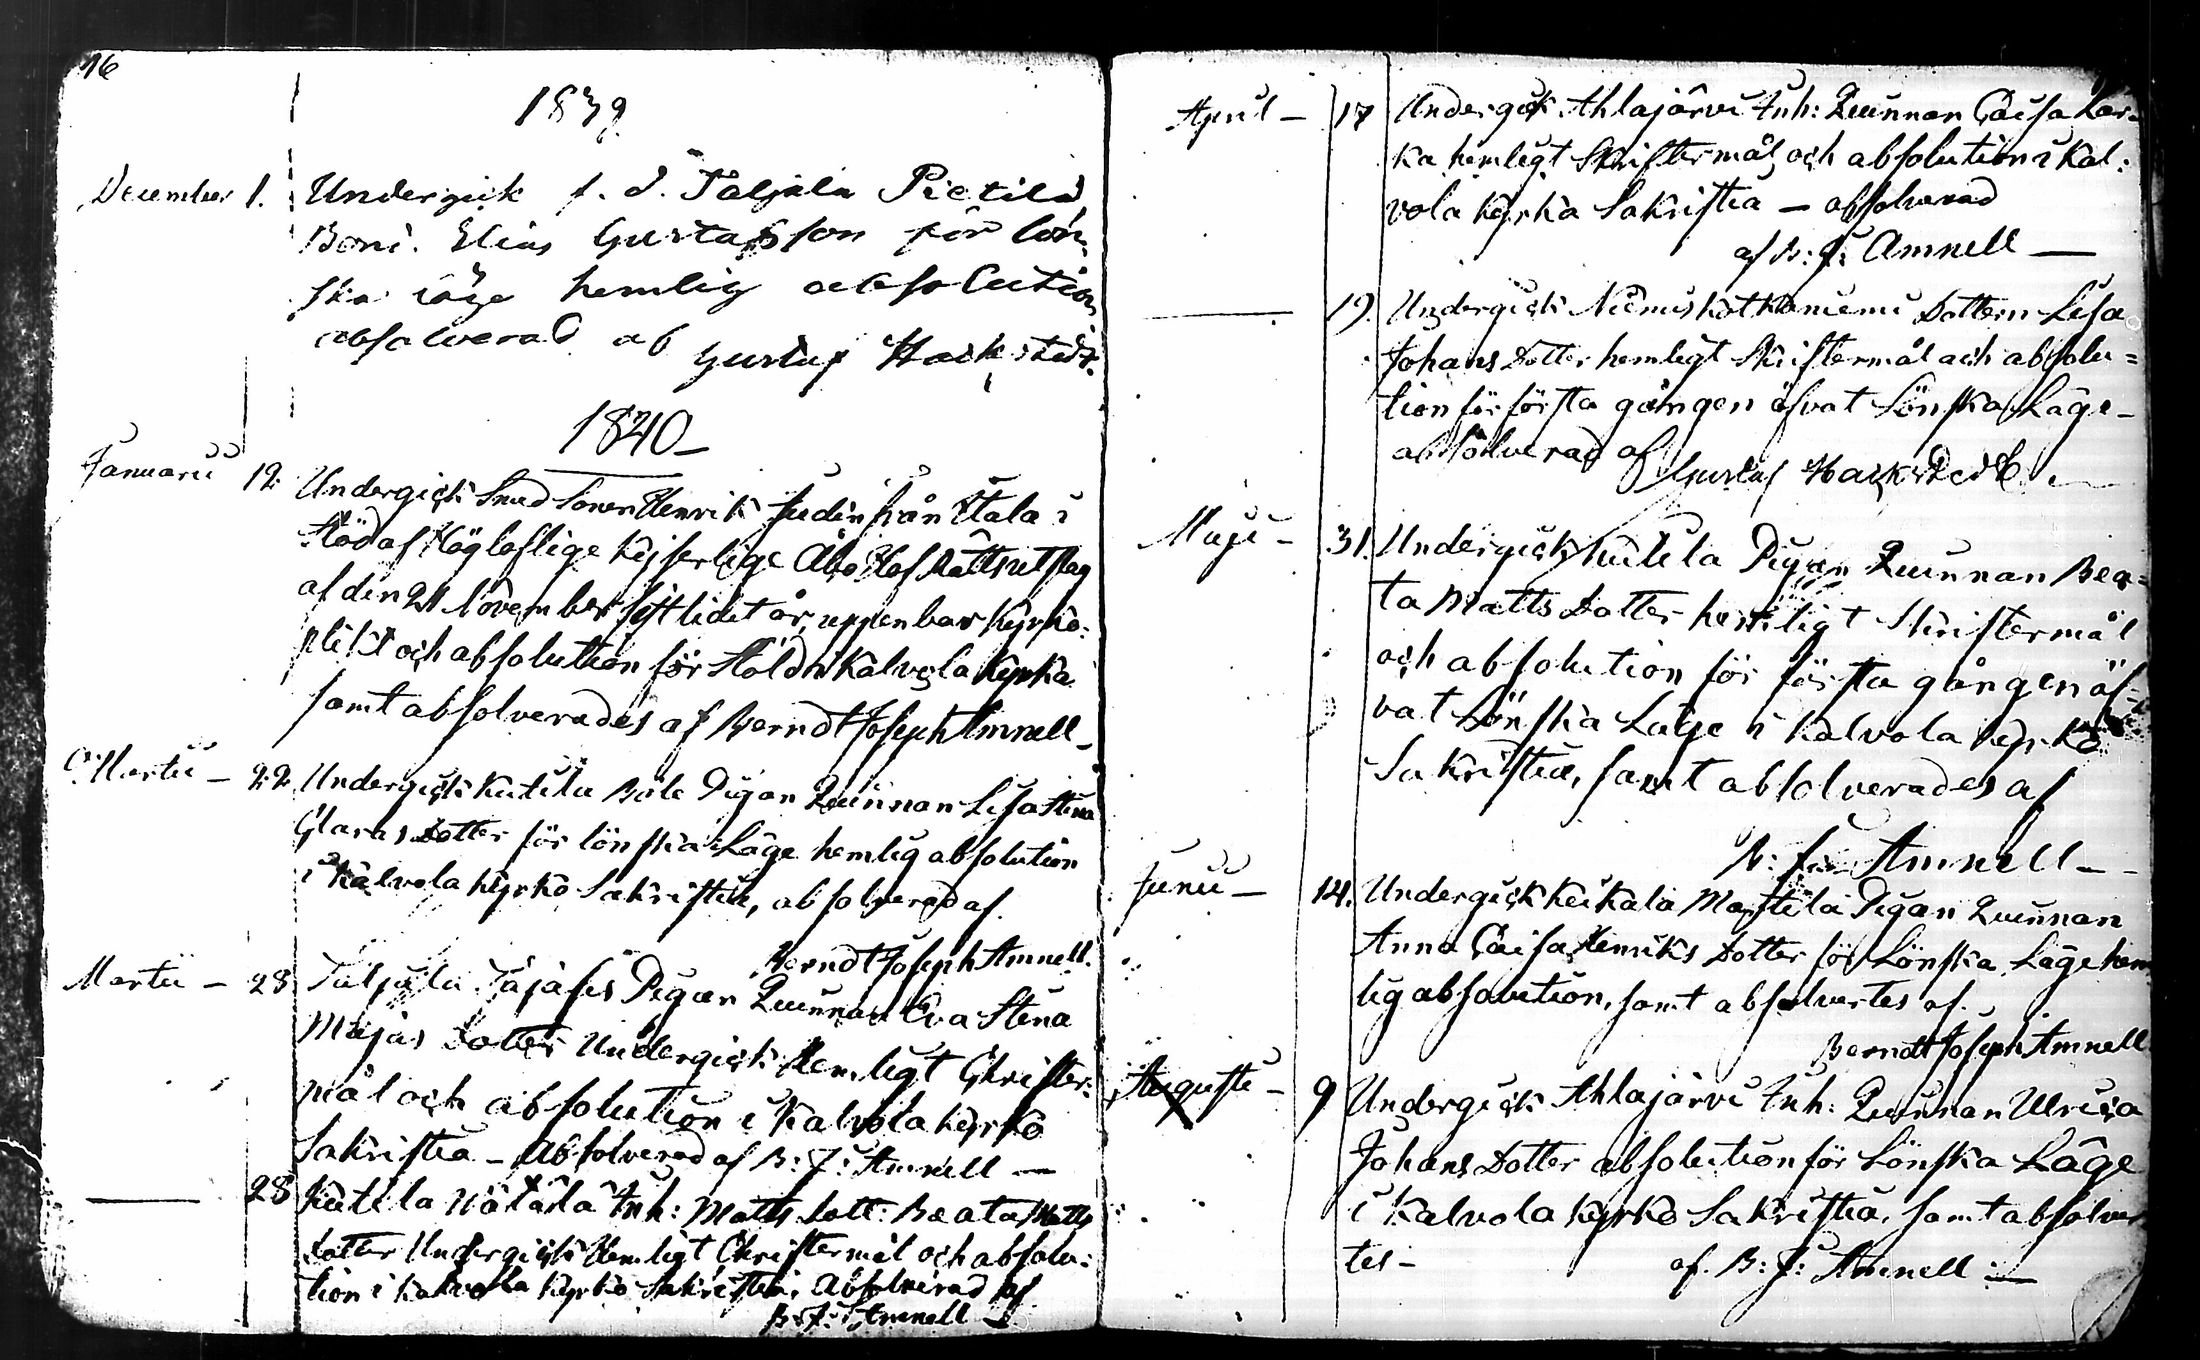 16
1839
December 1. Undergick f. d. Taljala Pietilä
Bond. Elias Gustafsson för lön-
ska läge hemlig absolution
absolverad af Gustaf Hackstedt.
1840
Januarii 12. Undergick Smed Sonen Henrik Judin från Ittala i
stöd af Högloflige Kejserlige Åbo Hof Rätts utslag
af den 21 November sistlidet år, uppenbar Kyrko-
plikt och absolution för Stöld i Kalvola Kyrka
samt absolverades af Berndt Joseph Amnell
Martii – 22 Undergick Kutila Böle Pigan Quinnan Lisa Stina
Claras Dotter för lönska Läge hemlig absolution
i Kalvola Kyrko Sakristia, absolverad af.
Berndt Joseph Amnell.
Martii – 28 Taljala Pigan Quinnan Eva Stina
Majas Dotter Undergick Hemligt Skrifter-
mål och absolution i Kalvola Kyrko
Sakristia – Absolverad af B: J: Amnell —
— 28 Kutila Inh: Matts Dott: Beata Matts
dotter Undergick Hemligt Skriftermål och absolu-
tion i Kalvola Kyrko Sakristia, Absolverad af
B: J: Amnell
April – 17 Undergick Ahlajärvi Inh: Quinnan Caisa Lar-
ka hemligt Skriftermål och absolution i Kal:
vola Kyrka Sakristia – absolverad
af B: J: Amnell —
— 19. Undergick Niemis Dottern Lisa
Johans Dotter hemligt Skriftermål och absolu=
tion för första gången öfvat Lönska Läge –
absolverad af Gustaf Hackstedt
Maji – 31. Undergick Kutila Pigan Quinnan Bea-
ta Matts Dotter hemligt Skriftermål
och absolution för första gången öf-
vat Lönska Läge i Kalvola Kyrko
Sakristia, samt absolverades af
B: J: Amnell –
Junii – 14. Undergick Keikala Marttila Pigan Quinnan
Anna Caisa Henriks Dotter för Lönska Läge hem
lig absolution, samt absolvertes af.
Berndt Joseph Amnell
Augusti – 9 Undergick Ahlajärvi Inh: Quinnan Ulrica
Johans Dotter absolution för Lönska Läge
i Kalvola Kyrko Sakristia, samt absolver
tes – af. B: J: Amnell